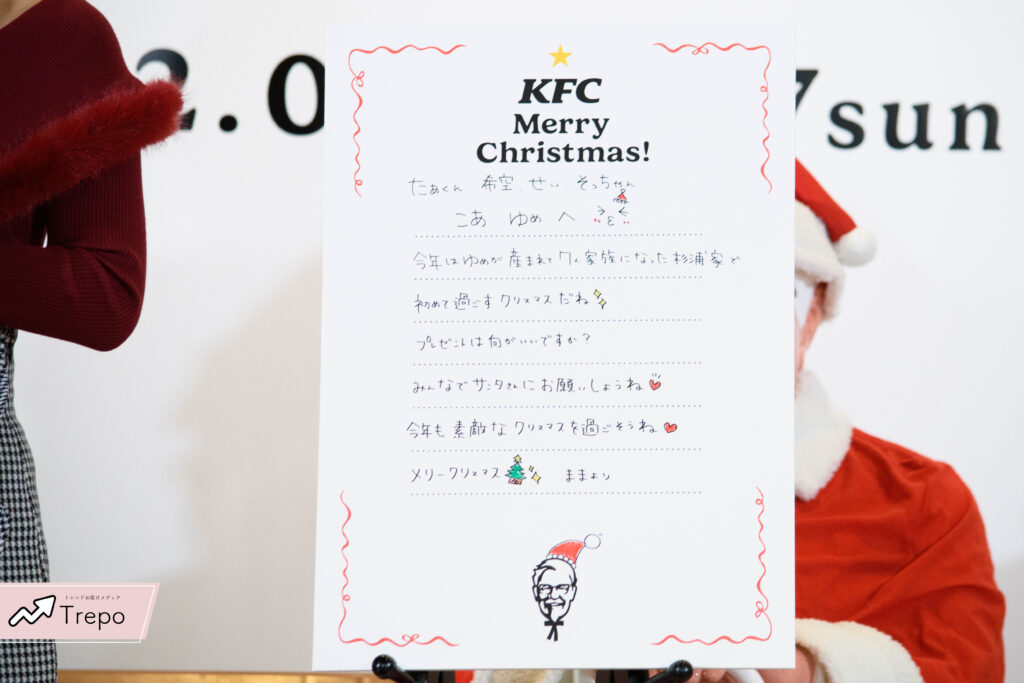 2.0
7sun
KFC
Merry
Christmas!
たぁくん、希空、せい、そっちゃん、
こあ、ゆめ へ
今年はゆめが産まれて7人家族になった杉浦家で
初めて過ごすクリスマスだね
プレゼントは何がいいですか?
みんなでサンタさんにお願いしようね
今年も素敵なクリスマスを過ごそうね
メリークリスマス ままより
トレンドお届けメディア
Trepo